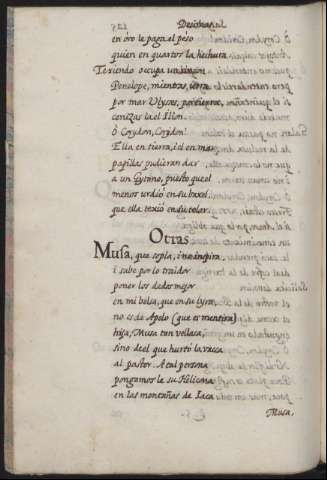 Decchanal
en oro le paga el peso
quien en quartos la hechura
Texiendo ocupa un rincon
Penelope, mientras corta
por mar Vlyxes, por tierra
cenizas la el Ilion.
Ò Corydon, Corydon!
Ella en tierra, i el en mar
papillas pudieran dar
a un Gitano, puesto que el
menos urdiò en su baxel
que ella texiò en su telar.
Otras
Musa, que sopla, i no inspira
i sabe por lo traidor
poner los dedos mejor
en mi bolsa, que en su lyra,
no es de Apolo (que es mentira)
hija, Musa tan vellaca,
sino de el que hurtò la vacca
al pastor. A tal persona
pongamosle su Helicona
en las montañas de Iaca
Musa.